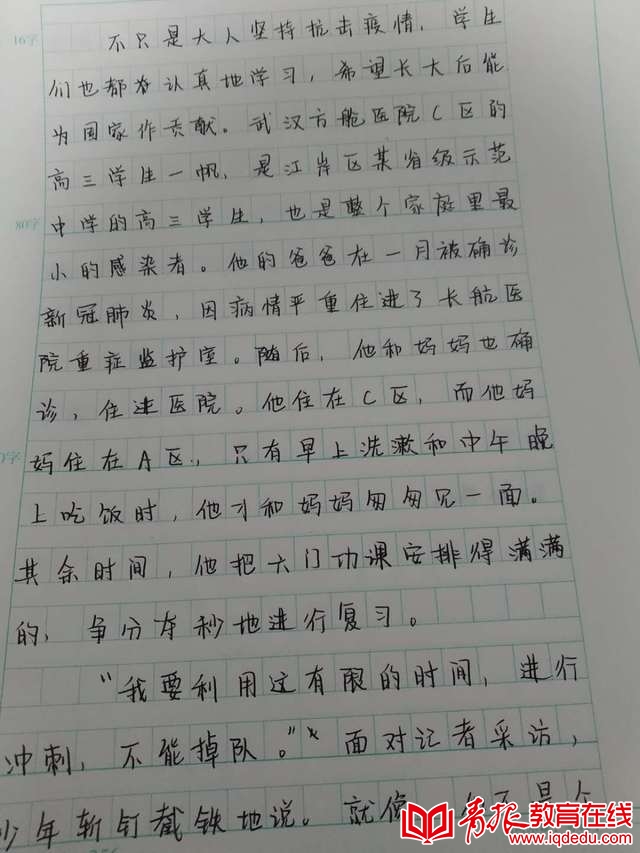 16字
不只是大人坚持抗击疫情，学生
们也都在认真地学习，希望长大后能
为国家作贡献。武汉方舱医院C区的
高三学生一帆，是江岸区某省级示范
80字
中学的高三学生，也是整个家庭里最
小的感染者。他的爸爸在一月被确诊
新冠肺炎，因病情严重住进了长航医
院重症监护室。随后，他和妈妈也确
诊，住进医院。他住在C区，而他妈
妈住在A区，只有早上洗漱和中午晚
上吃饭时，他才和妈妈匆匆见一面。
其余时间，他把六门功课安排得满满
的，争分夺秒地进行复习。
“我要利用这有限的时间，进行
冲刺，不能掉队。”面对记者采访，
少年斩钉截铁地说。就像
青报教育在线
www.iqdedu.com